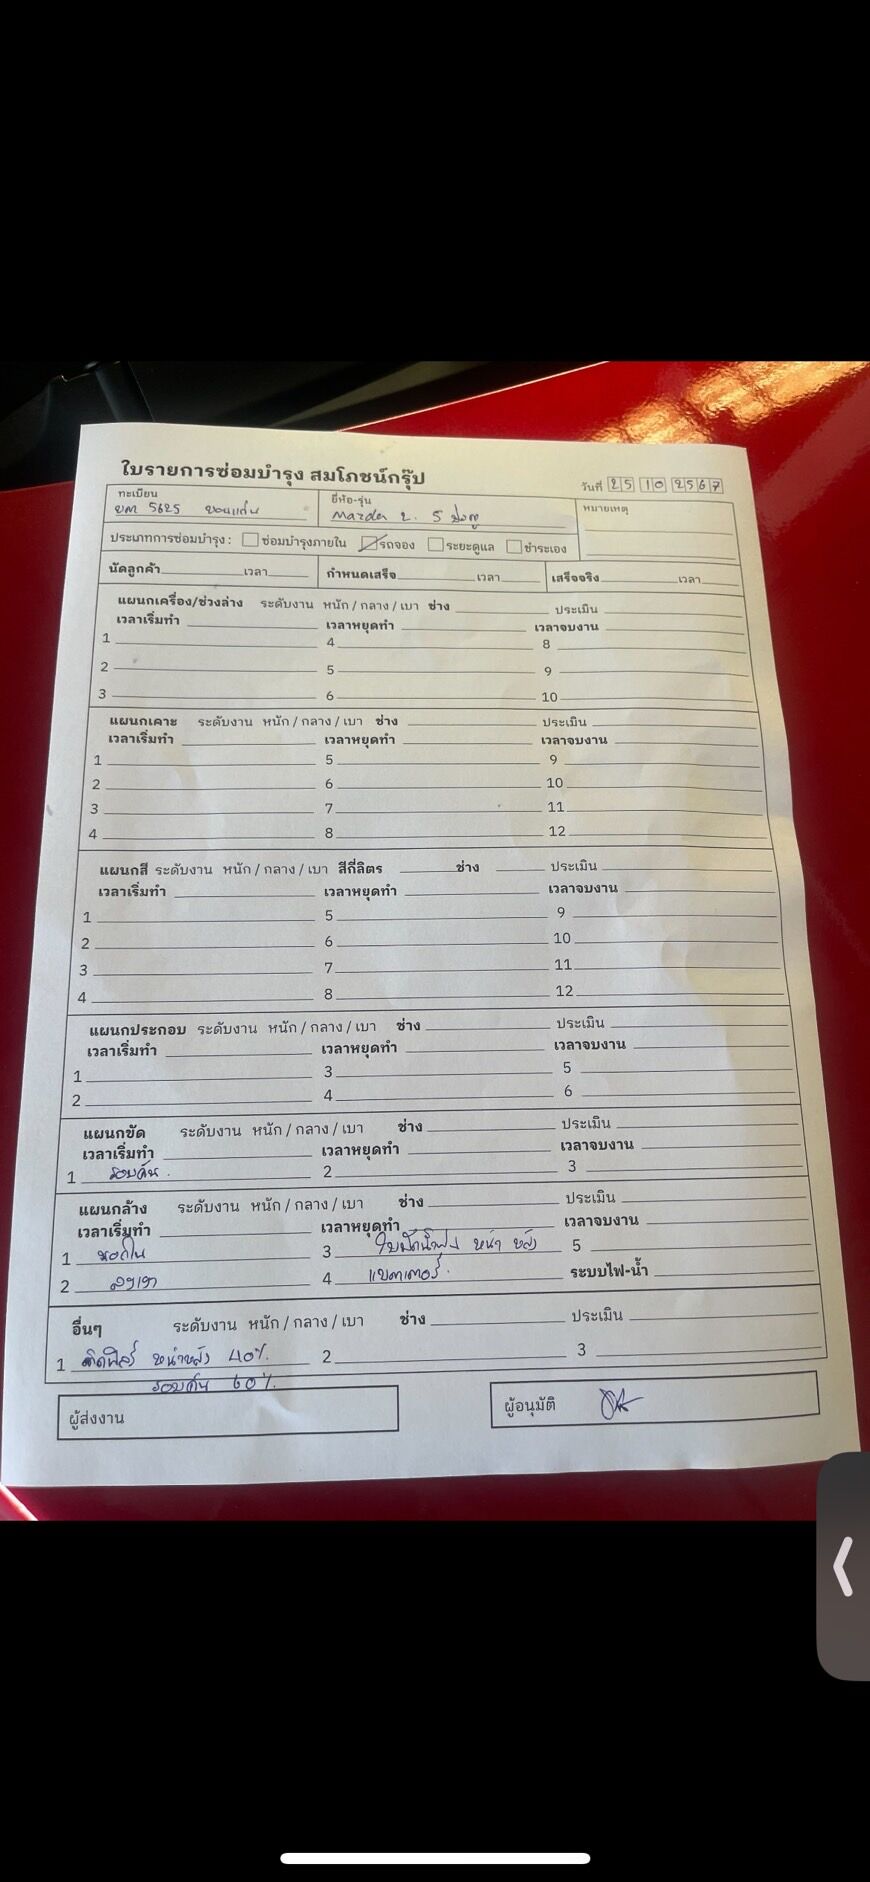 ใบรายการซ่อมบำรุง สมโภชน์กรุ๊ป
วันที่ 25 10 2567
ทะเบียน ยี่ห้อ-รุ่น หมายเหตุ
5625 ขอนแก่น Mazda 2. 5 ประตู
ประเภทการซ่อมบำรุง : ซ่อมบำรุงภายใน รถจอง ระยะดูแล ชำระเอง
นัดลูกค้า เวลา กำหนดเสร็จ เวลา เสร็จจริง เวลา
แผนกเครื่อง/ช่วงล่าง ระดับงาน หนัก / กลาง / เบา ช่าง ประเมิน
เวลาเริ่มทำ เวลาหยุดทำ เวลาจบงาน
1 4 8
2 5 9
3 6 10
แผนกเคาะ ระดับงาน หนัก / กลาง / เบา ช่าง ประเมิน
เวลาเริ่มทำ เวลาหยุดทำ เวลาจบงาน
1 5 9
2 6 10
3 7 11
4 8 12
แผนกสี ระดับงาน หนัก / กลาง / เบา สีกี่ลิตร ช่าง ประเมิน
เวลาเริ่มทำ เวลาหยุดทำ เวลาจบงาน
1 5 9
2 6 10
3 7 11
4 8 12
แผนกประกอบ ระดับงาน หนัก / กลาง / เบา ช่าง ประเมิน
เวลาเริ่มทำ เวลาหยุดทำ เวลาจบงาน
1 3 5
2 4 6
แผนกขัด ระดับงาน หนัก / กลาง / เบา ช่าง ประเมิน
เวลาเริ่มทำ เวลาหยุดทำ เวลาจบงาน
1 รอบคัน. 2 3
แผนกล้าง ระดับงาน หนัก / กลาง / เบา ช่าง ประเมิน
เวลาเริ่มทำ เวลาหยุดทำ เวลาจบงาน
1 3 ใบปัดน้ำฝน หน้า หลัง 5
2 4 แบตเตอร์รี่. ระบบไฟ-น้ำ
อื่นๆ ระดับงาน หนัก / กลาง / เบา ช่าง ประเมิน
1 ติดฟิล์ม หน้าหลัง 40%. 2 3
รอบคัน 60%.
ผู้ส่งงาน ผู้อนุมัติ